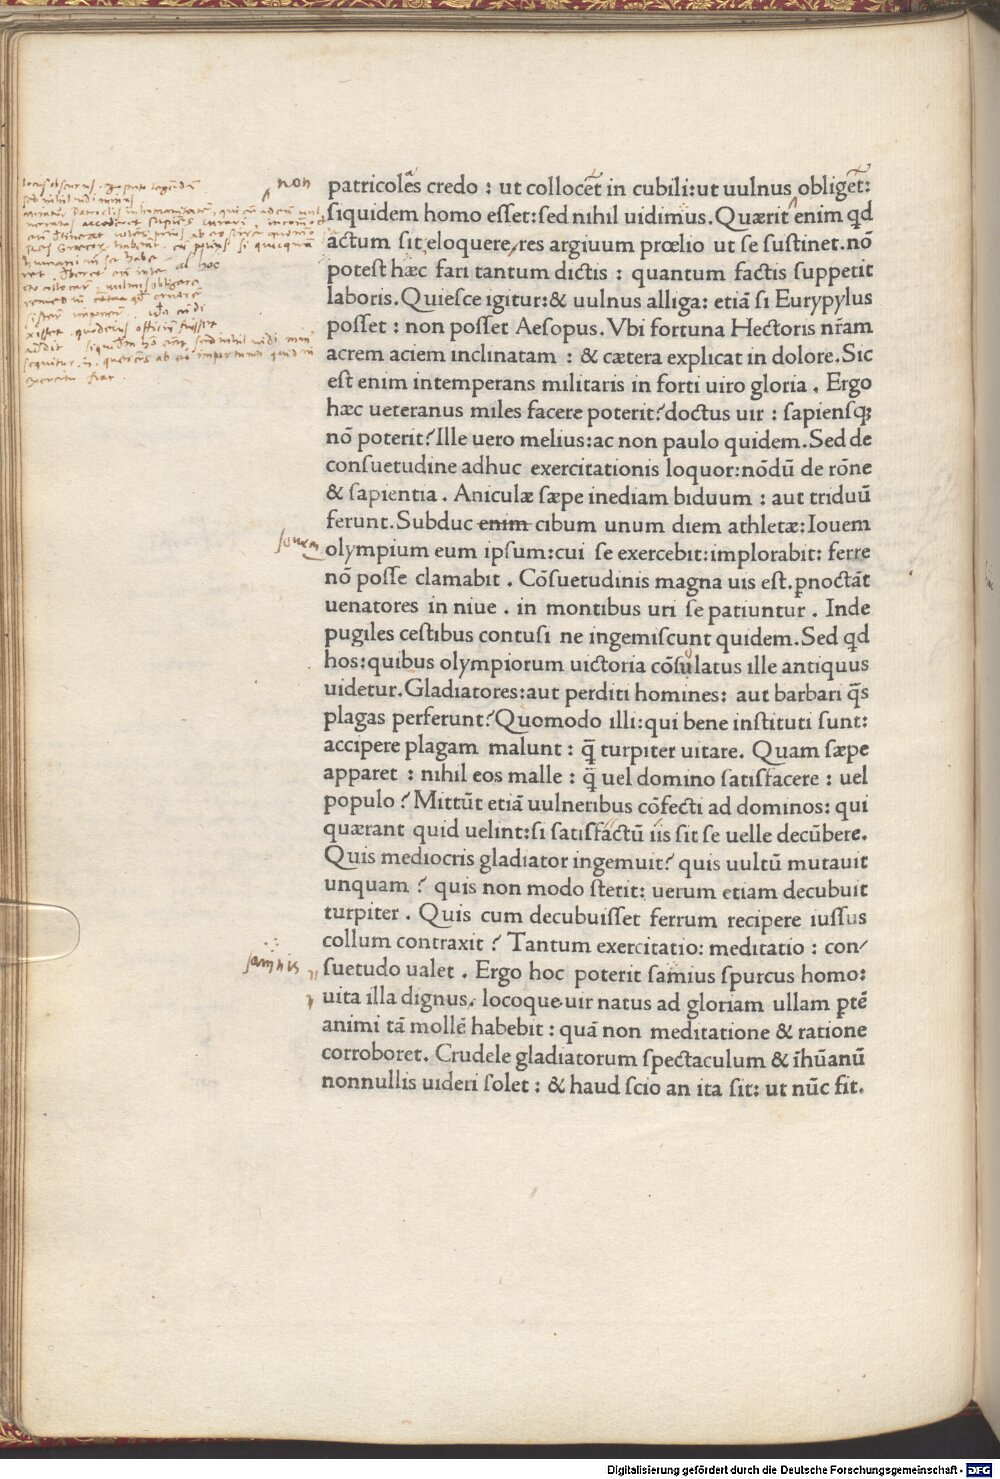 non
patricoles credo : ut collocet in cubili:ut uulnus obliget:
ſiquidem homo eſſet:ſed nihil uidimus. Quærit enim qd
actum ſit eloquere,res argiuum prœlio ut ſe ſuſtinet.nō
poteſt hæc fari tantum dictis : quantum factis ſuppetit
laboris. Quieſce igitur:& uulnus alliga: etiā ſi Eurypylus
poſſet : non poſſet Aeſopus. Vbi fortuna Hectoris nr̄am
acrem aciem inclinatam : & cætera explicat in dolore. Sic
eſt enim intemperans militaris in forti uiro gloria . Ergo
hæc ueteranus miles facere poterit? doctus uir : ſapienſqꝫ
nō poterit? Ille uero melius:ac non paulo quidem. Sed de
conſuetudine adhuc exercitationis loquor:nōdū de rōne
& ſapientia . Aniculæ ſæpe inediam biduum : aut triduū
ferunt. Subduc enim cibum unum diem athletæ: Iouem
Iouem
olympium eum ipſum:cui ſe exercebit:implorabit: ferre
nō poſſe clamabit . Cōſuetudinis magna uis eſt. ꝑnoctāt
uenatores in niue . in montibus uri ſe patiuntur . Inde
pugiles ceſtibus contuſi ne ingemiſcunt quidem. Sed qd
hos:quibus olympiorum uictoria cōſulatus ille antiquus
uidetur. Gladiatores:aut perditi homines: aut barbari q̄s
plagas perferunt? Quomodo illi:qui bene inſtituti ſunt:
accipere plagam malunt : q̄ turpiter uitare. Quam ſæpe
apparet : nihil eos malle : q̄ uel domino ſatiſfacere : uel
populo ? Mittūt etiā uulneribus cōfecti ad dominos: qui
quærant quid uelint:ſi ſatiſfactū iis ſit ſe uelle decūbere.
Quis mediocris gladiator ingemuit? quis uultū mutauit
unquam ? quis non modo ſtetit: uerum etiam decubuit
turpiter . Quis cum decubuiſſet ferrum recipere iuſſus
collum contraxit ? Tantum exercitatio: meditatio : con-
ſuetudo ualet . Ergo hoc poterit ſamius ſpurcus homo:
uita illa dignus, locoque uir natus ad gloriam ullam ꝑtē
animi tā mollē habebit : quā non meditatione & ratione
corroboret. Crudele gladiatorum ſpectaculum & īhūanū
nonnullis uideri ſolet : & haud ſcio an ita ſit: ut nūc fit.
Digitalisierung gefördert durch die Deutsche Forschungsgemeinschaft - DFG